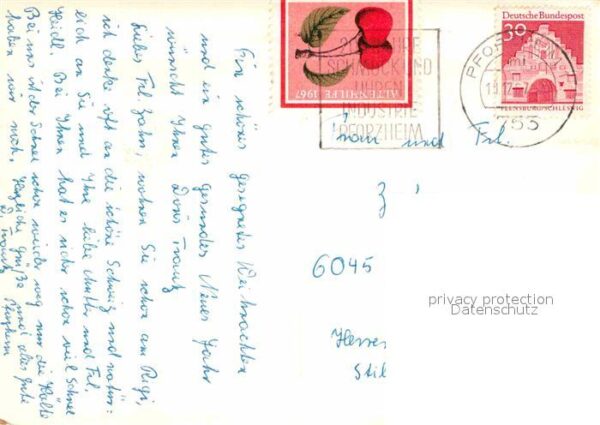 Ein schönes gesegnetes Weihnachten
und ein gutes gesundes Neues Jahr
wünscht Ihnen
Doris Trautz
Liebes Frl. Zahn, waren Sie schon am Rigi,
ich denke oft an die schöne Schweiz und natür:
lich an Sie und Ihre liebe Mutter und Frl.
Heidi. Bei Ihnen hat es sicher schon viel Schnee
Bei uns ist der Schnee schon wieder weg nur die Kälte
haben wir noch. Herzliche Grüße und alles Gute
Ihr Trautz
ALTENHILFE 1967
Deutsche Bundespost
30
FLENSBURG/SCHLESWIG
JAHRE
SCHMUCK UND
UHREN
INDUSTRIE
PFORZHEIM
PFORZHEIM
755
Frau und Frl.
Z
6045
privacy protection
Datenschutz